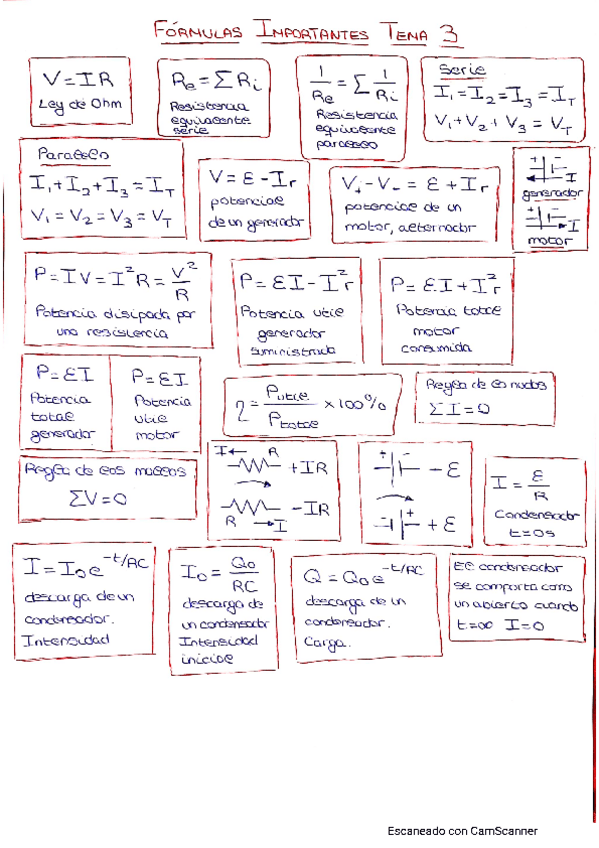 FÓRMULAS IMPORTANTES TEMA 3
V = IR
Ley de Ohm
Re = ΣRi
Resistencia
equivalente
serie
1/Re = Σ 1/Ri
Resistencia
equivalente
paralelo
Serie
I₁ = I₂ = I₃ = I_T
V₁ + V₂ + V₃ = V_T
Paralelo
I₁ + I₂ + I₃ = I_T
V₁ = V₂ = V₃ = V_T
V = ε - Ir
potencial
de un generador
V₊ - V₋ = ε + Ir
potencial de un
motor, alternador
+ -
I
generador
+ -
I
motor
P = IV = I²R = V²/R
Potencia disipada por
una resistencia
P = εI - I²r
Potencia util
generador
suministrada
P = εI + I²r
Potencia total
motor
consumida
P = εI
Potencia
total
generador
P = εI
Potencia
util
motor
η = Putil/Ptotal × 100%
Regla de los nudos
ΣI = 0
Regla de las mallas
ΣV = 0
I R
+ IR
- IR
R I
+ - - ε
- + + ε
I = ε/R
Condensador
t = 0s
I = I₀e^(-t/RC)
descarga de un
condensador.
Intensidad
I₀ = Q₀/RC
descarga de
un condensador
Intensidad
inicial
Q = Q₀e^(-t/RC)
descarga de un
condensador.
Carga.
El condensador
se comporta como
un abierto cuando
t = ∞ I = 0
Escaneado con CamScanner